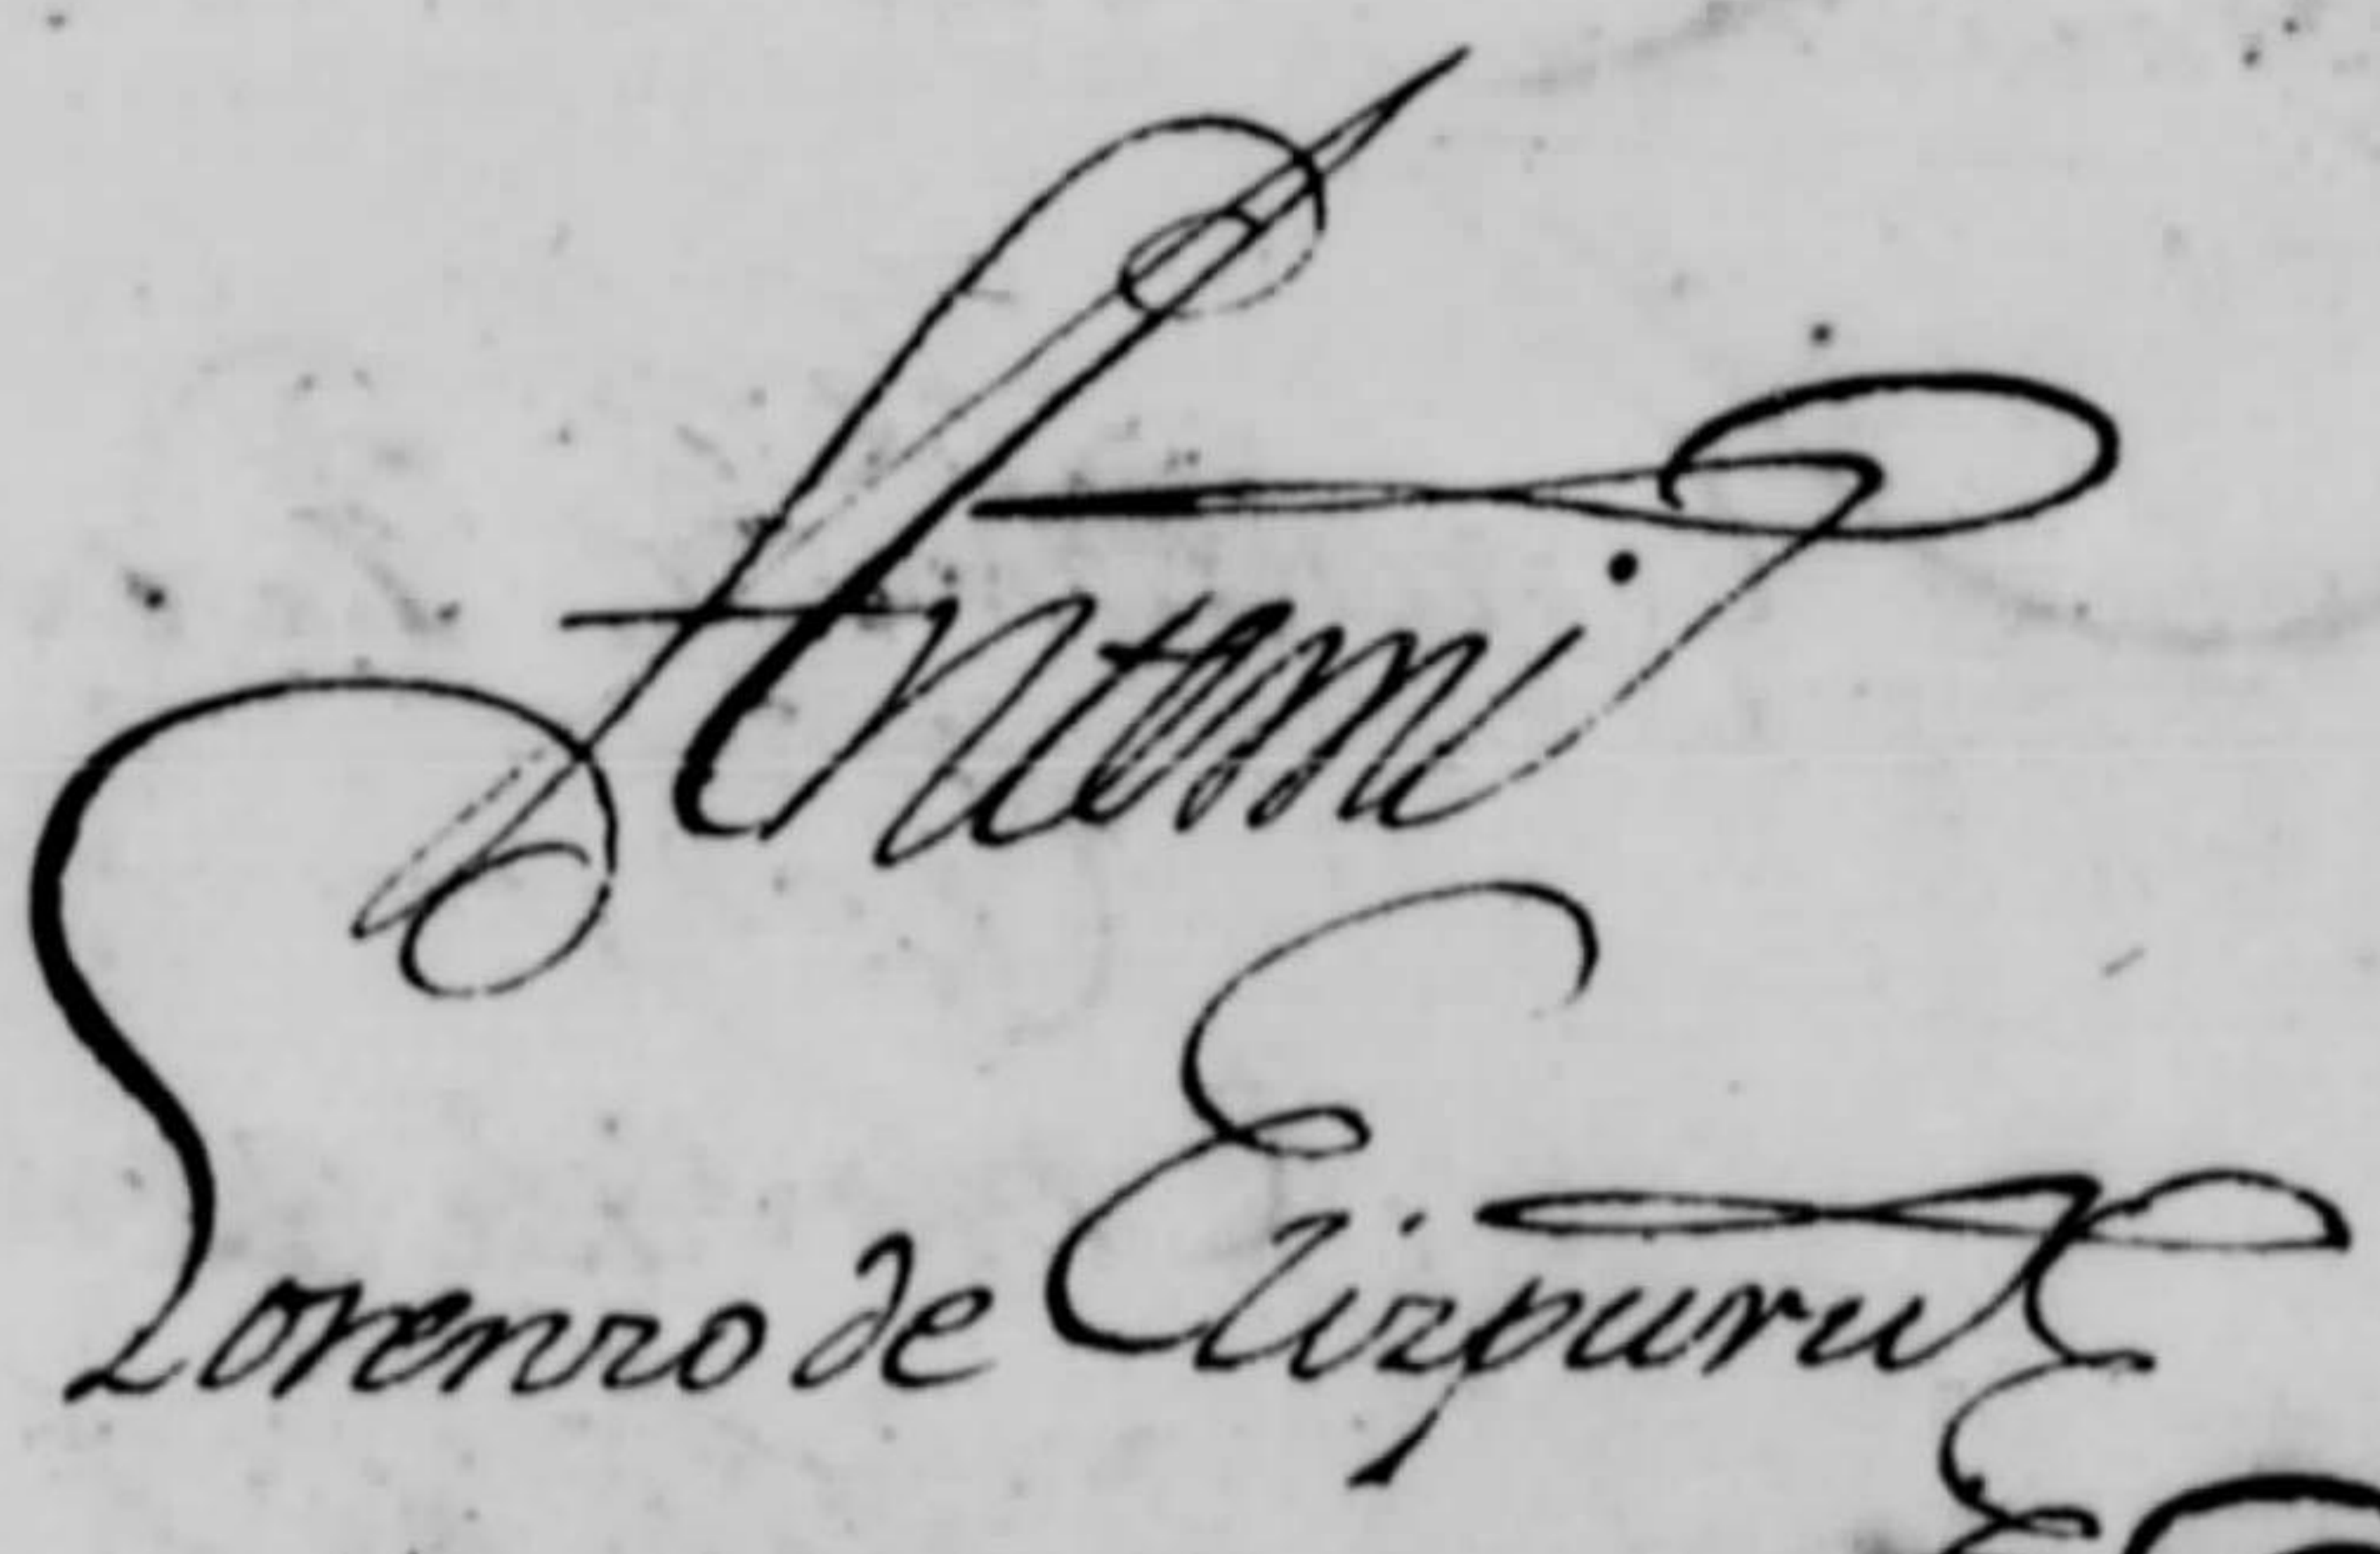 Antoni
Lorenzo de Elizpuru